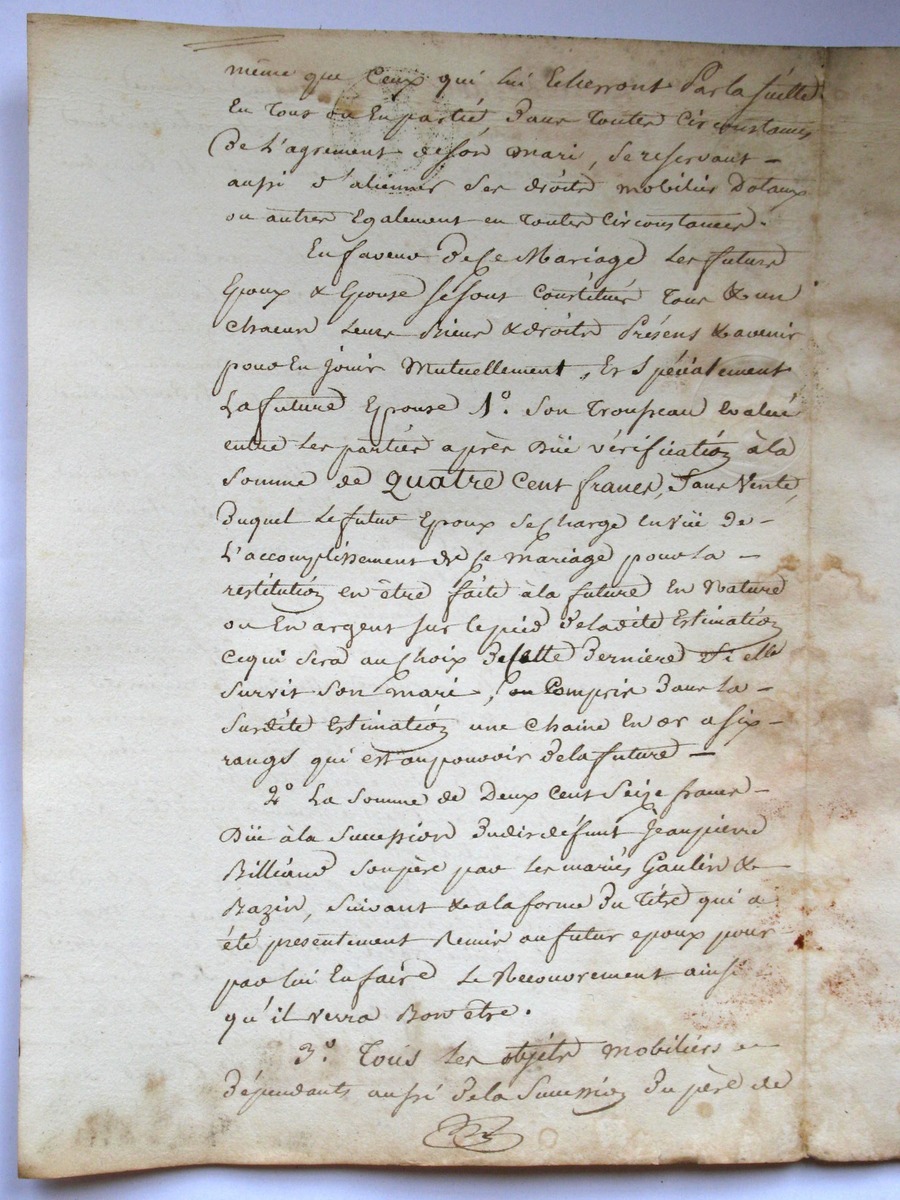 même que Ceux qui lui Echerront Par la suitte
En Tous ou En partie Dans Toutes Circonstances
De L'agrement de son mari, se reservant –
aussi d'alienner ses droits mobiliers Dotaux
ou autres Egalement en Toutes Circonstances.
En faveur de Ce Mariage Les futurs
Epoux & Epouse se sont Constitués Tous & un
Chacun Leurs Biens & droits Présens & avenir
pour En jouir Mutuellement, Et Spécialement
La future Epouse 1º. Son Trousseau Evalué
entre Les parties après Düe vérification à la
Somme de Quatre Cent francs, Sans Vente,
Duquel Le futur Epoux se Charge en vüe de –
L'accomplissement de Ce mariage pour La –
restitution en être faite à la future En Nature
ou En argent sur le pied de la dite Estimation
Ce qui sera au Choix De Cette Derniere Si elle
Survit Son mari, Compris Dans La –
Susdite Estimation une Chaine En or a six –
rangs qui est au pouvoir de la future –
2º La Somme de Deux Cent Seize francs –
Düe à la Succession Dudit défunt Jean pierre
Billiand Son père par Les mariés Gaulin &
Bazin, Suivant & a la forme Du Titre qui a
été présentement Remis au futur epoux pour
par lui En faire Le Recouvrement ainsi
qu'il verra Bon être.
3º. Tous Les objets mobiliers
Dépendants aussi De la Succession Du père de